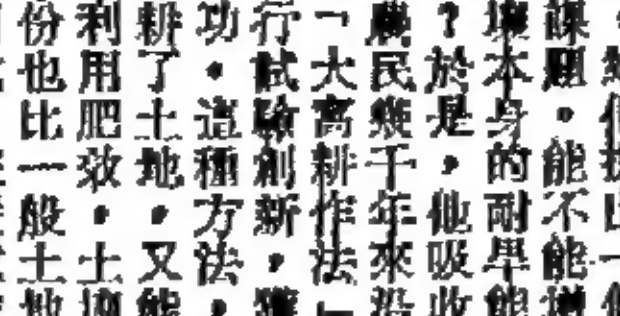 課題。能不能增
壤本身的耐旱能
？於是，他吸收
農民幾千年來沿
「大寨耕作法」
行試驗創新，獲
功。這種方法，
耕了土地，又能
利用肥效。土壤
份也比一般土地